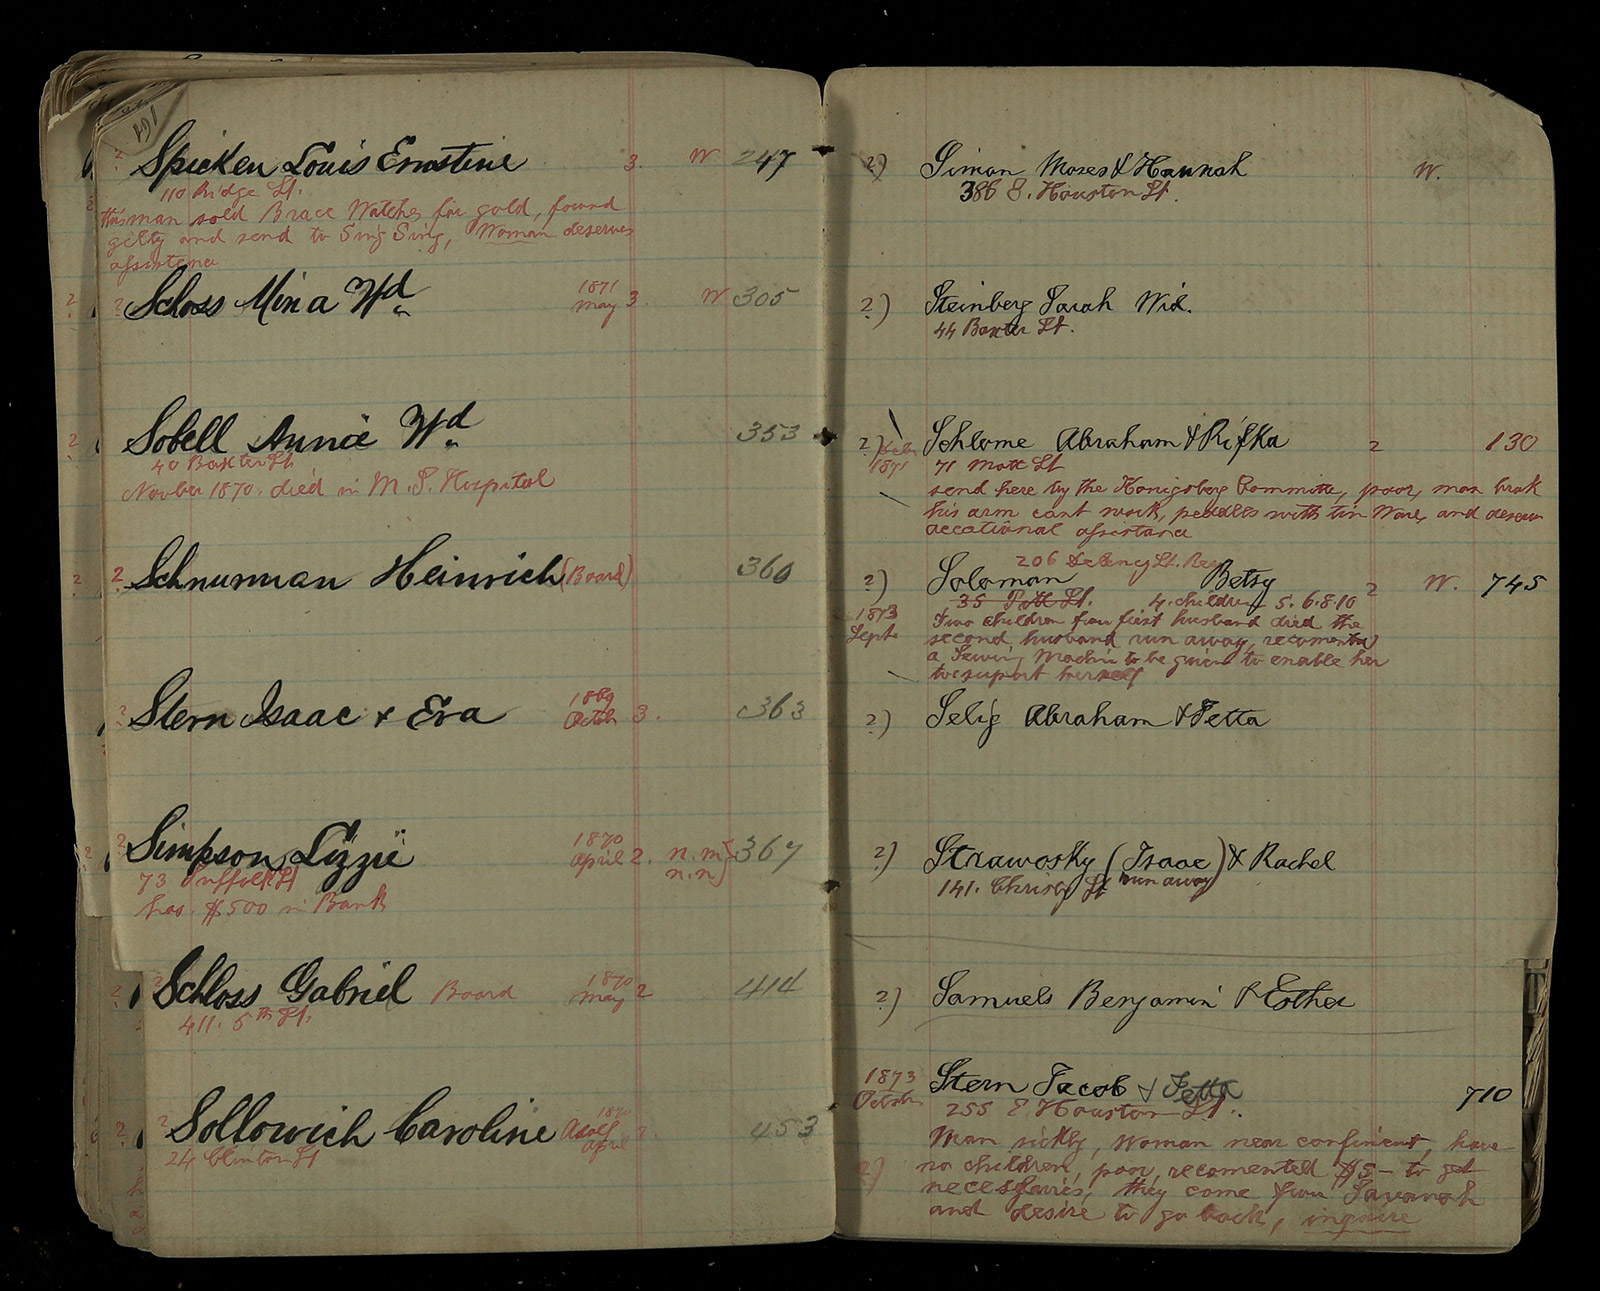 191
2 Spicken Louis Ernstine 3. W 247
110 Ridge St.
this man sold Brace Watches for gold, found
gilty and send to Sing Sing, Woman deserves
assistence
2 2 Schoss Mina Wd 1871 May 3. W 305
2 Sobell Annie Wd 353
40 Baxter St
Novber 1870. died in M. S. Hospital
2 2. Schnurman Heinrich (Board) 360
2 Stern Isaac & Eva 1869 Octob 3. 363
2 Simpson Lizzie 1870 April 2. n.m. 367
n.n
73 Suffolk St
has $500 in Bank
2 Schloss Gabriel Board 1870 May 2 414
411. 5th St.
2 2 Sollowich Caroline Adolf 1870 April 2. 453
24 Clinton St
2) Simon Moses & Hannah W.
386 E. Houston St.
2) Steinberg Sarah Wid.
44 Baxter St.
2) Feb 1871 Schlome Abraham & Rifka 2 130
71 Mott St
send here by the Konigsberg Committe, poor, man brak
his arm cant work, peddles with tin Ware, and deserv
accational assistance
206 Delency St. Rear
2) Soloman Betsy 2 W. 745
35 Pitt St. 4. children 5. 6. 8. 10
1873 Sept. Two children from first husband died the
second husband run away, recomented
a Sewing Machin to be given to enable her
to suport herself
2) Selig Abraham & Yetta
2) Strawosky (Isaac) & Rachel
141. Christy St run away
2) Samuels Benjamin & Esther
1873 October Stern Jacob & Yetta 710
255 E Houston St.
Man sickly, Woman near confinent, have
2) no children, poor, recomented $5 – to get
necessaries, they come from Savanah
and desire to go back, inquire